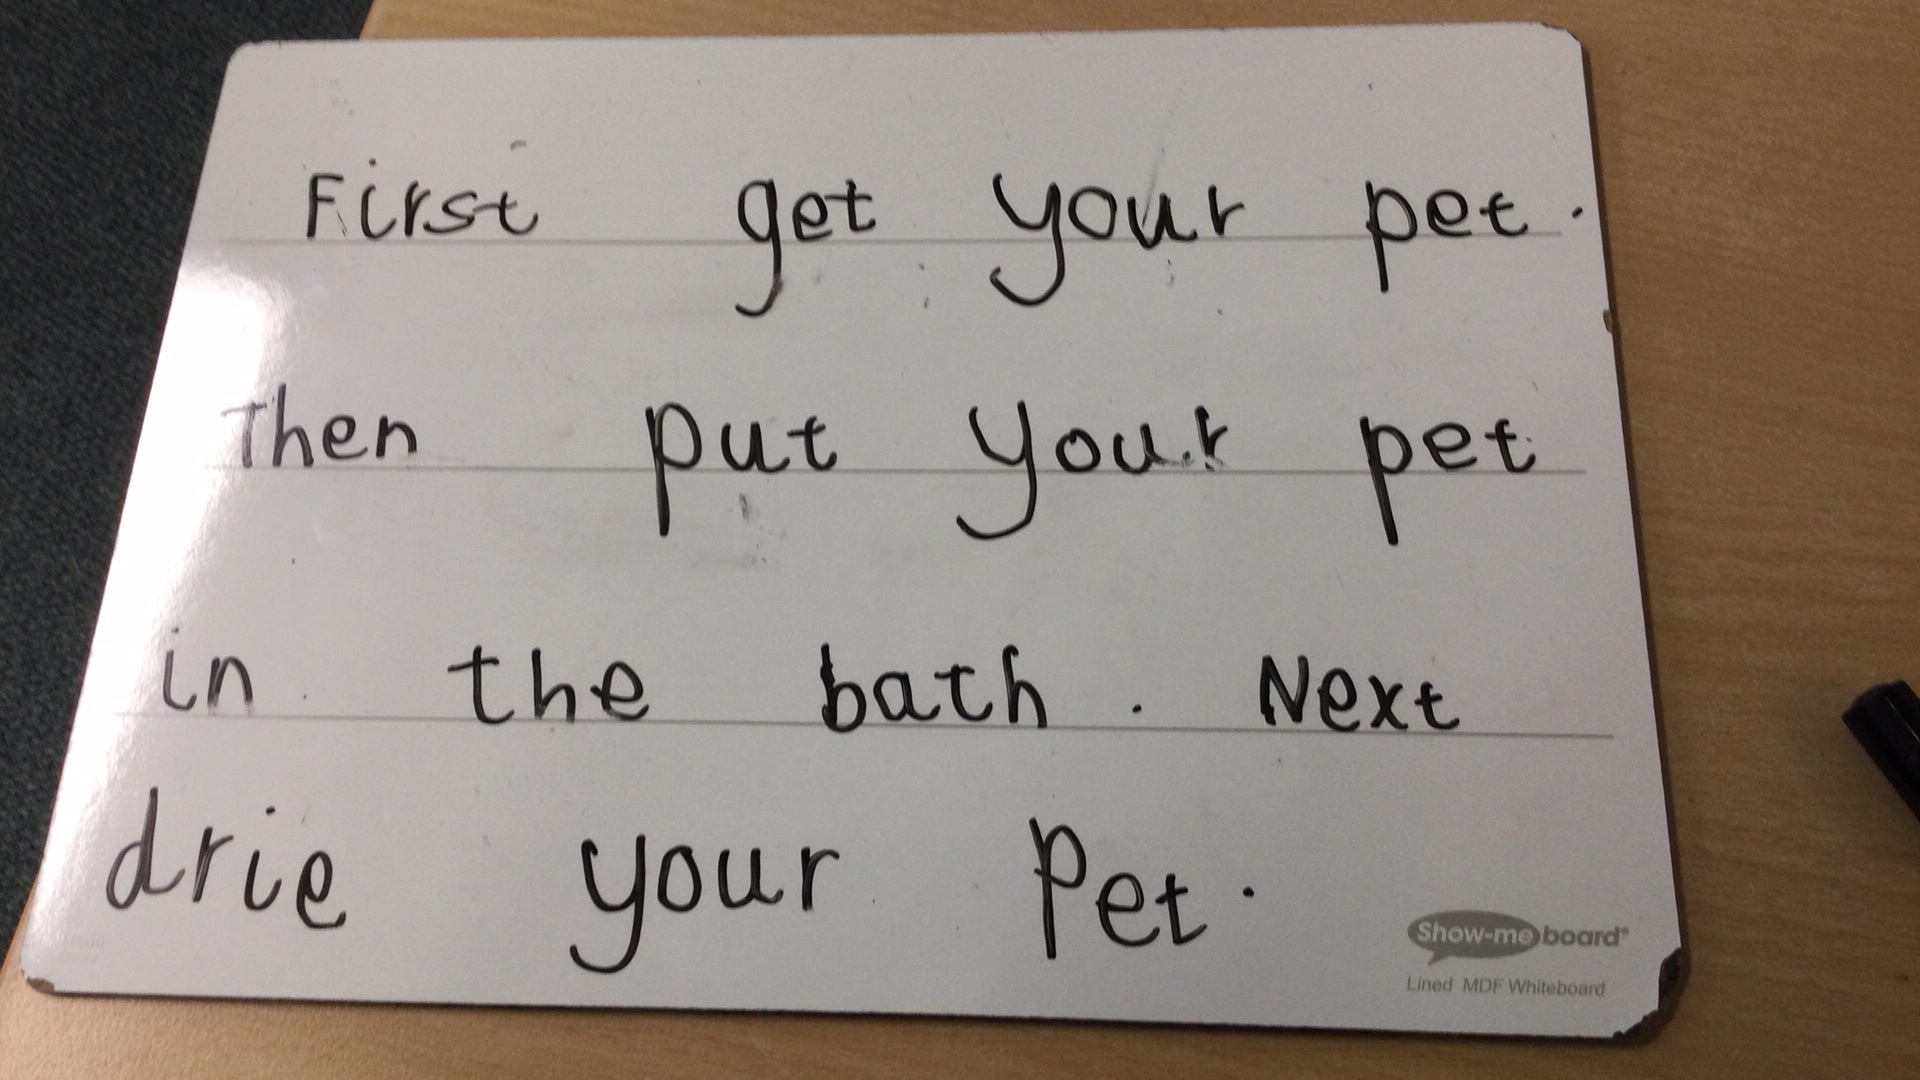 First get your pet.
Then put your pet
in the bath. Next
drie your Pet.
Show-me board®
Lined MDF Whiteboard